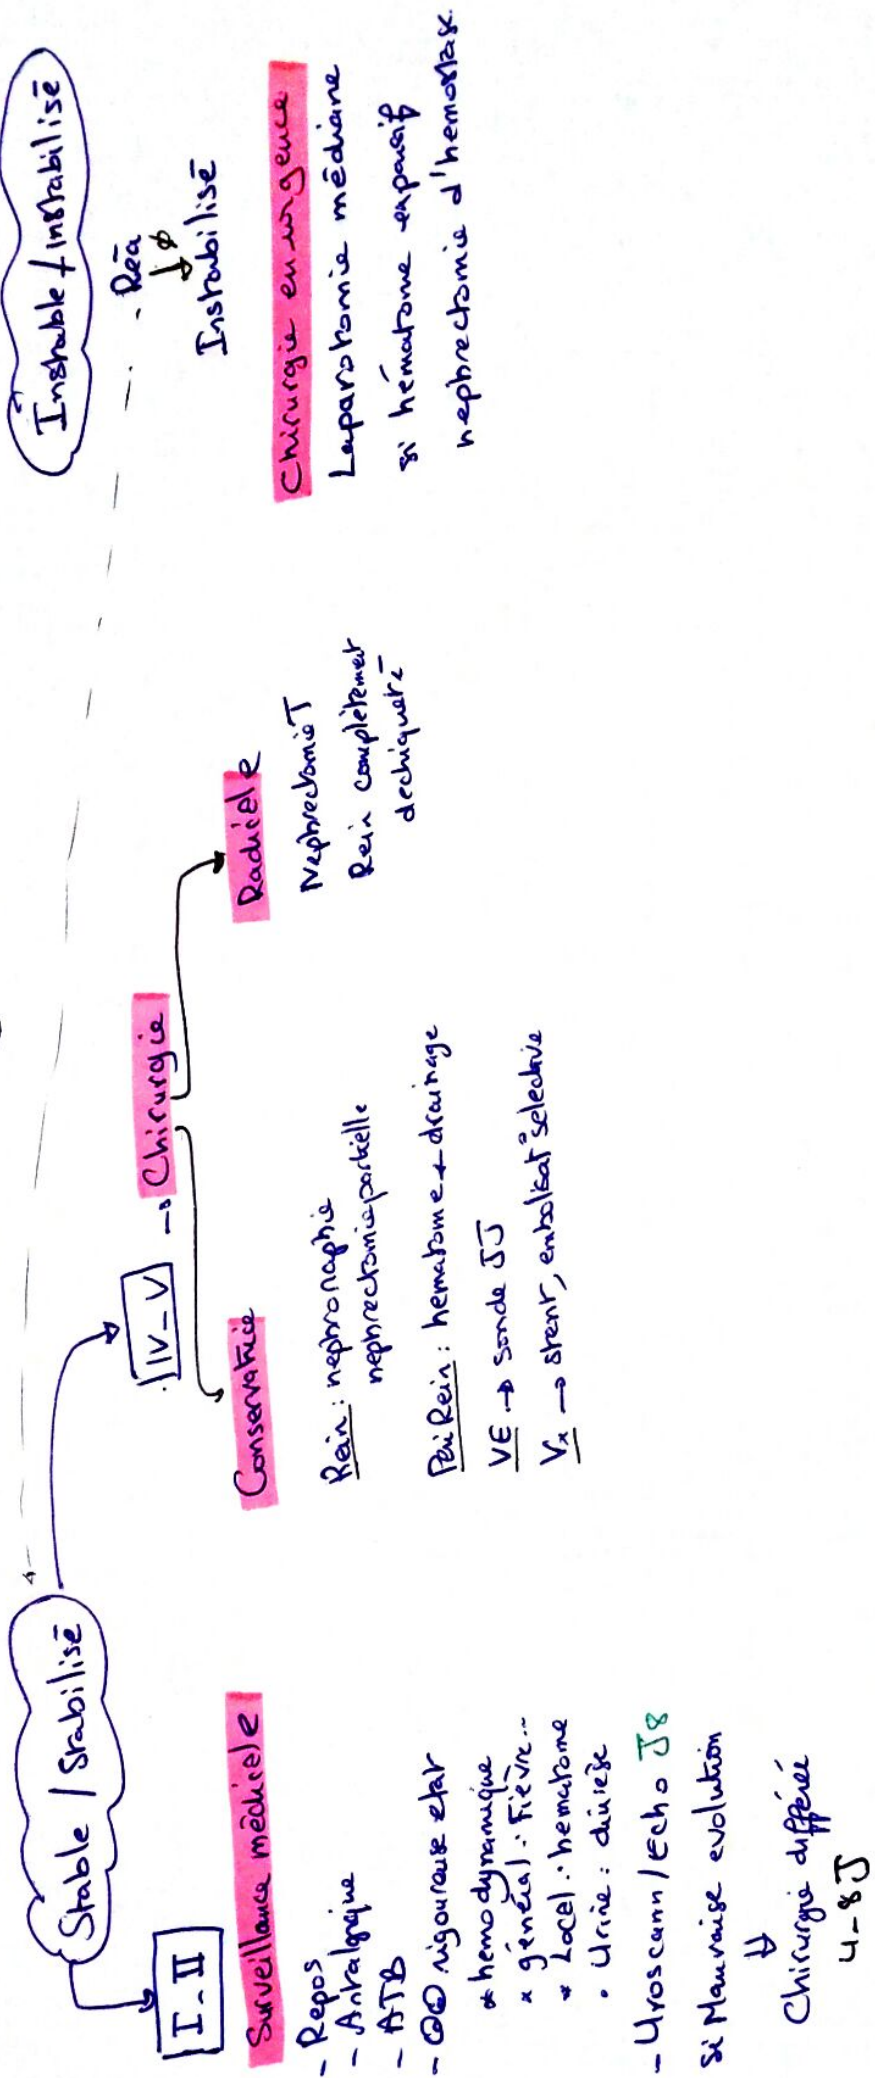 Stable / Stabilisé
I - II
Surveillance médicale
- Repos
- Antalgique
- ATB
- rigoureuse etat
* hemodynamique
* général : Fièvre...
* Local : hematome
• Urine : diurèse
- Uroscann / Echo J8
si Mauvaise evolution
⇓
Chirurgie différée
4-8J
IV - V → Chirurgie
Conservatrice
Rein : nephroraphie
nephrectomie partielle
PeriRein : hematome → drainage
VE → Sonde JJ
Vx → stent, embolisat° selective
Radicale
Nephrectomie T
Rein complètement
dechiqueté
Instable / instabilisé
- Réa
↓ ø
Instabilisé
Chirurgie en urgence
Laparotomie médiane
si hématome expansif
nephrectomie d'hemostase